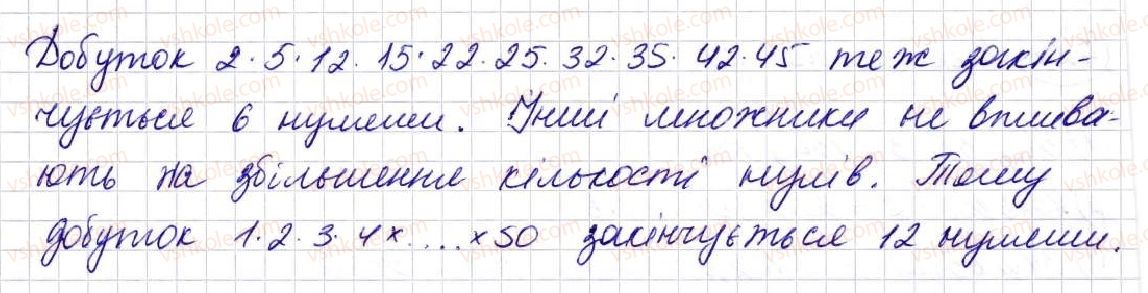 Добуток 2·5·12·15·22·25·32·35·42·45 теж закін-
чується 6 нулями. Інші множники не вплива-
ють на збільшення кількості нулів. Тому
добуток 1·2·3·4×....×50 закінчується 12 нулями.